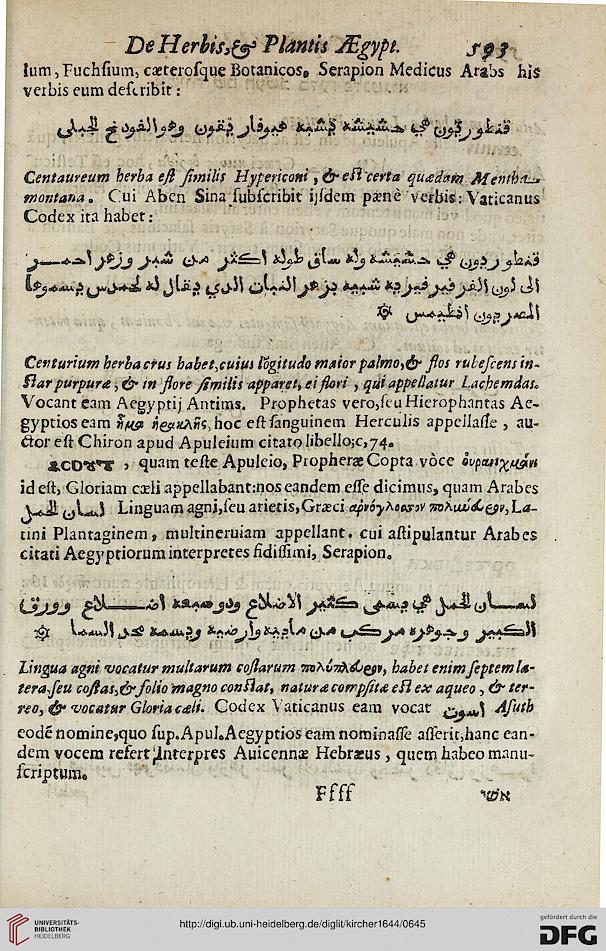 De Herbis, & Plantis Ægypt. 593
lum, Fuchsium, cæterosque Botanicos. Serapion Medicus Arabs his
verbis eum describit:
قنطوريون هي حشيشه يشبه هيوفاريقون وهو الفودنج الجبلي
Centaureum herba est similis Hypericoni, & est certa quædam Mentha
montana. Cui Aben Sina subscribit ijsdem pænè verbis: Vaticanus
Codex ita habet:
قنطوريون هي حشيشه وله ساق طوله اكثر من شبر وزهر احمر
الى لون الفرفير فيريه شبيه بزهر النبات الذي يقال له لخمدس يسموها
المصريون انطيمس
Centurium herba crus habet, cuius lōgitudo maior palmo, & flos rubescens in-
star purpuræ, & in flore similis apparet, ei flori, qui appellatur Lachemdas.
Vocant eam Aegyptij Antims. Prophetas vero, seu Hierophantas Ae-
gyptios eam ἧμα ἡρακλῆς, hoc est sanguinem Herculis appellasse, au-
ctor est Chiron apud Apuleium citato libello; c, 74.
, quam teste Apuleio, Prophetæ Copta vòce
id est, Gloriam cæli appellabant: nos eandem esse dicimus, quam Arabes
لسان الحمل Linguam agni, seu arietis, Græci ἀρνόγλοσσον πολύπλευρον, La-
tini Plantaginem, multineruiam appellant. cui astipulantur Arabes
citati Aegyptiorum interpretes fidissimi, Serapion.
لسان الحمل هي يسمى كثير الاضلاع وذو سبعه اضلاع وورق
الكبير وجوهره مركب من ماييه وارضيه ويسمه مجد السما
Lingua agni vocatur multarum costarum πολύπλευρον, habet enim septem la-
tera, seu costas, & folio magno constat, naturæ compsitæ est ex aqueo, & ter-
reo, & vocatur Gloria cæli. Codex Vaticanus eam vocat اسوت Asuth
eodē nomine, quo sup. Apul. Aegyptios eam nominasse asserit, hanc ean-
dem vocem refert Interpres Auicennæ Hebræus, quem habeo manu-
scriptum.
Ffff אשי
UNIVERSITÄTS-
BIBLIOTHEK
HEIDELBERG
http://digi.ub.uni-heidelberg.de/diglit/kircher1644/0645
gefördert durch die
DFG